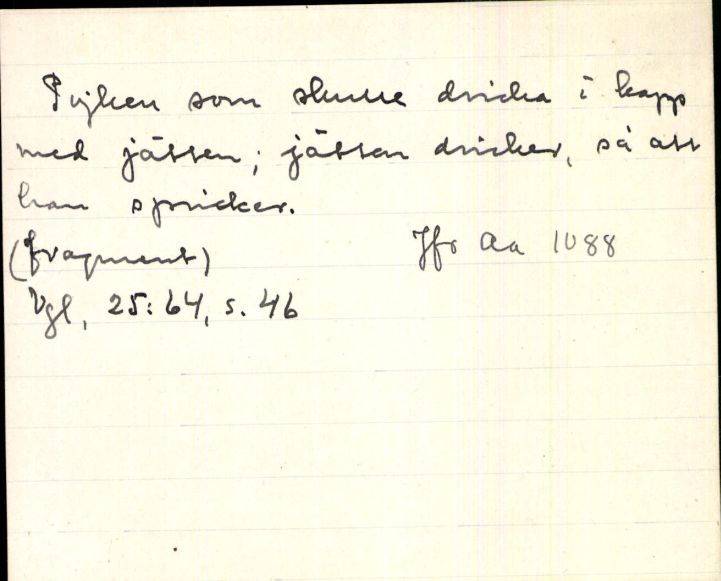 Pojken som skulle dricka i kapp
med jätten; jätten dricker, så att
han spricker.
(fragment) Jfr Aa 1088
Vgl, 25:64, s. 46